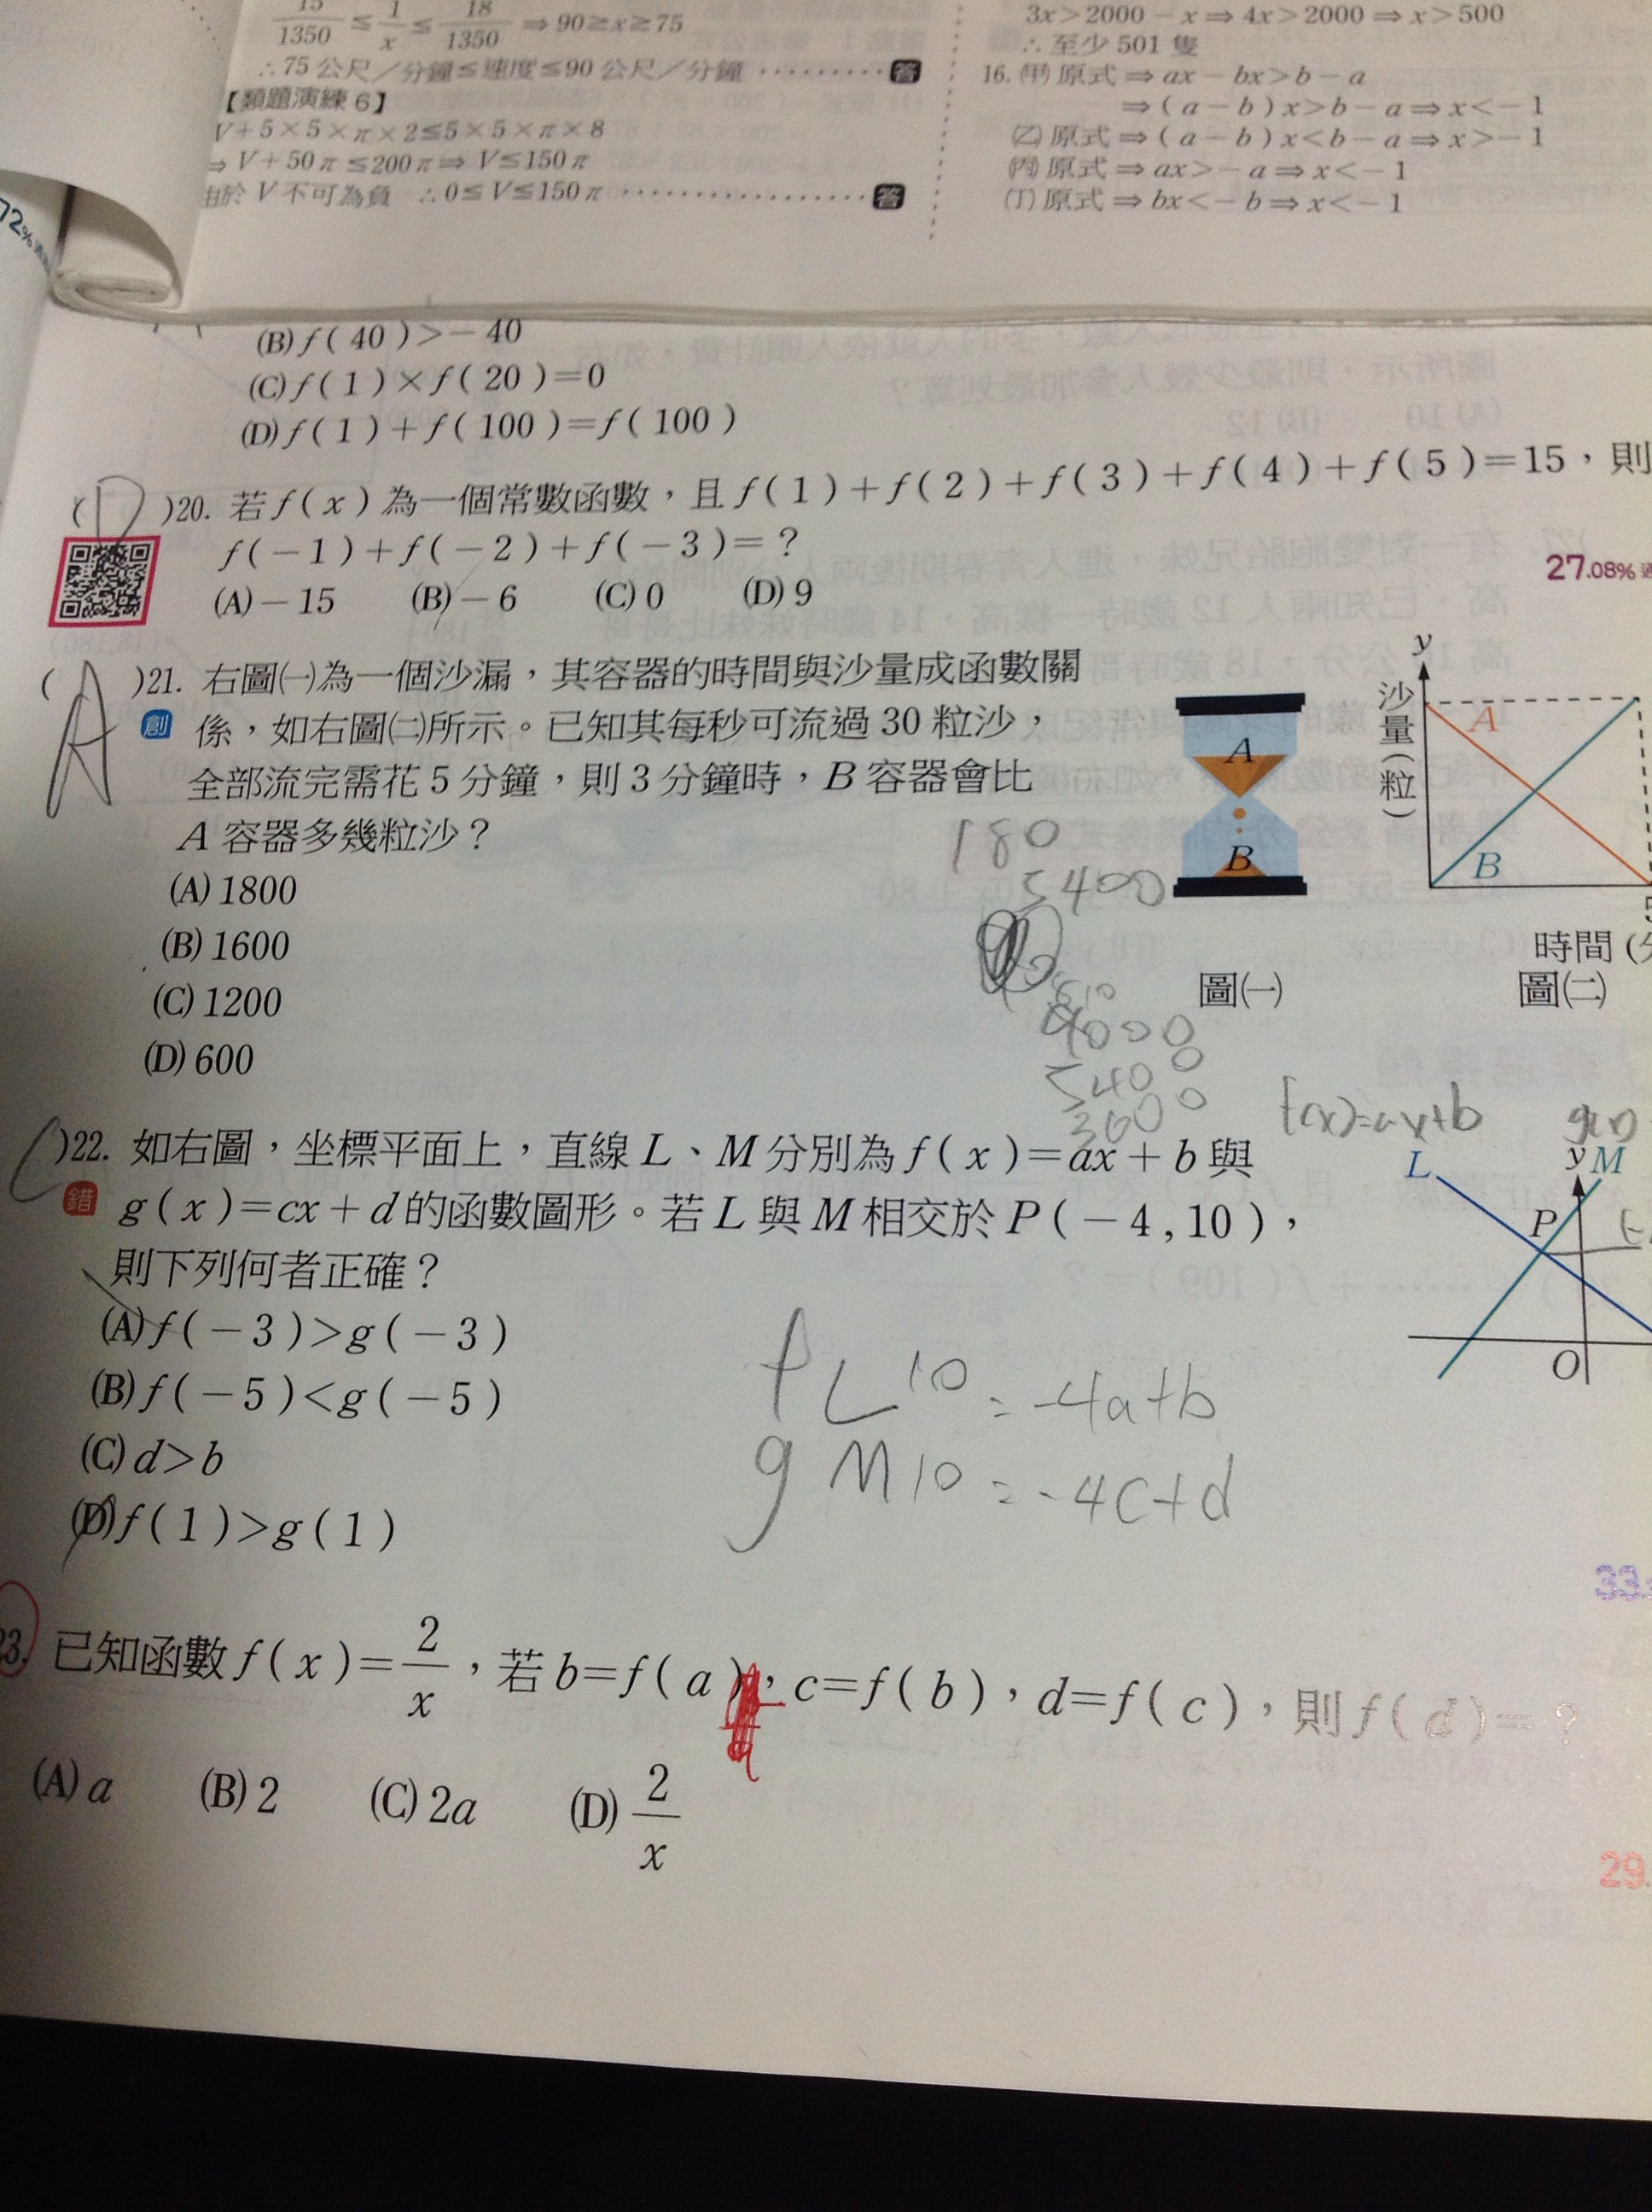 15/1350 ≤ 1/x ≤ 18/1350 ⇒ 90≥x≥75
∴75 公尺／分鐘≤速度≤90 公尺／分鐘 ········· 答
【類題演練 6】
V+5×5×π×2≤5×5×π×8
⇒ V+50π≤200π⇒ V≤150π
由於 V 不可為負 ∴0≤V≤150π ················· 答
3x>2000-x⇒4x>2000⇒x>500
∴至少 501 隻
16.㈙原式⇒ax-bx>b-a
⇒(a-b)x>b-a⇒x<-1
(乙)原式⇒(a-b)x<b-a⇒x>-1
(丙)原式⇒ax>-a⇒x<-1
(丁)原式⇒bx<-b⇒x<-1
72%
(B) f(40)>-40
(C) f(1)×f(20)=0
(D) f(1)+f(100)=f(100)
( D )20. 若 f(x) 為一個常數函數，且 f(1)+f(2)+f(3)+f(4)+f(5)=15，則
f(-1)+f(-2)+f(-3)=？
(A)-15 (B)-6 (C) 0 (D) 9
27.08%
( A )21. 右圖㈠為一個沙漏，其容器的時間與沙量成函數關
創 係，如右圖㈡所示。已知其每秒可流過 30 粒沙，
全部流完需花 5 分鐘，則 3 分鐘時，B 容器會比
A 容器多幾粒沙？
(A) 1800
(B) 1600
(C) 1200
(D) 600
A
B
圖㈠
y
沙量(粒)
A
B
時間
圖㈡
180
5400
5400
3600
( C )22. 如右圖，坐標平面上，直線 L、M 分別為 f(x)=ax+b 與
錯 g(x)=cx+d 的函數圖形。若 L 與 M 相交於 P(-4,10)，
則下列何者正確？
(A) f(-3)>g(-3)
(B) f(-5)<g(-5)
(C) d>b
(D) f(1)>g(1)
f(x)=ax+b
L
y
M
P
O
f L 10 = -4a+b
g M 10 = -4c+d
23. 已知函數 f(x)=2/x，若 b=f(a)，c=f(b)，d=f(c)，則 f(d)=？
(A) a (B) 2 (C) 2a (D) 2/x
33.
29.